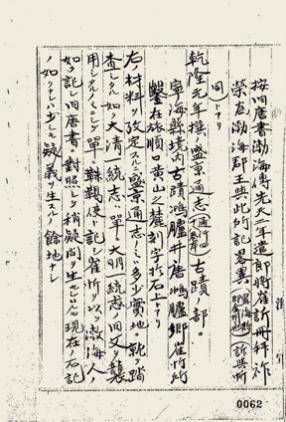 按旧唐書渤海傳先天二年遣郎將崔訢冊拜祚
榮為渤海郡王與此所記畧異
同シトアリ
乾隆元年撰盛京通志古蹟ノ部ニ
寧海縣境内古蹟鴻臚井唐鴻臚卿崔忻所
鑿在旅順口黄山之麓刻字於石上トアリ
右ノ材料ヲ攷定スルニ盛京通志ノミハ多少實地ニ就ヲ踏
査シタル如ク大清一統志ハ單ニ大明一統志ノ旧文ヲ襲
用シタルノミニシテ單ニ靺鞨使ト記シ崔忻ヲ以テ渤海人ノ
如ク記シ旧唐書ニ對照シテ稍疑問ヲ生セルハ現在ノ石記
ノ如クナレハ少シモ疑義ヲ生スルノ餘地ナシ
0062